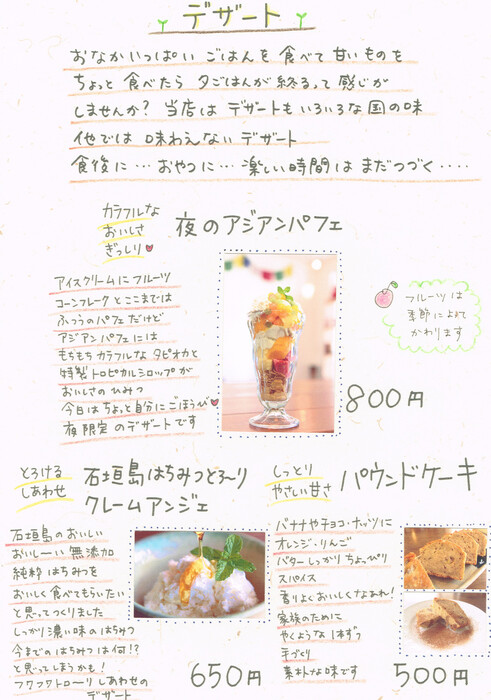 デザート
おなかいっぱい ごはんを 食べて 甘いものを
ちょっと 食べたら 夕ごはんが終るって感じが
しませんか? 当店は デザートもいろいろな国の味
他では 味わえない デザート
食後に… おやつに… 楽しい時間は まだつづく‥‥
カラフルな
おいしさ
ぎっしり
夜のアジアンパフェ
アイスクリームに フルーツ
コーンフレークと ここまでは
ふつうの パフェだけど
アジアンパフェには
もちもち カラフルな タピオカと
特製トロピカルシロップが
おいしさの ひみつ
今日は ちょっと 自分に ごほうび
夜限定のデザートです
フルーツは
季節によって
かわります
800円
とろける
しあわせ
石垣島はちみつとろ〜り
クレームアンジェ
石垣島の おいしい
おいし〜い 無添加
純粋はちみつを
おいしく食べてもらいたい
と思ってつくりました
しっかり濃い味のはちみつ
今までのはちみつは何!?
と思ってしまうかも!
フワフワトロ〜リ しあわせの
デザート
650円
しっとり
やさしい甘さ
パウンドケーキ
バナナやチョコ・ナッツに
オレンジ・りんご
バターしっかり ちょっぴり
スパイス
香りよくおいしくなあれ!
家族のために
やくような 1本ずつ
手づくり
素朴な味です
500円